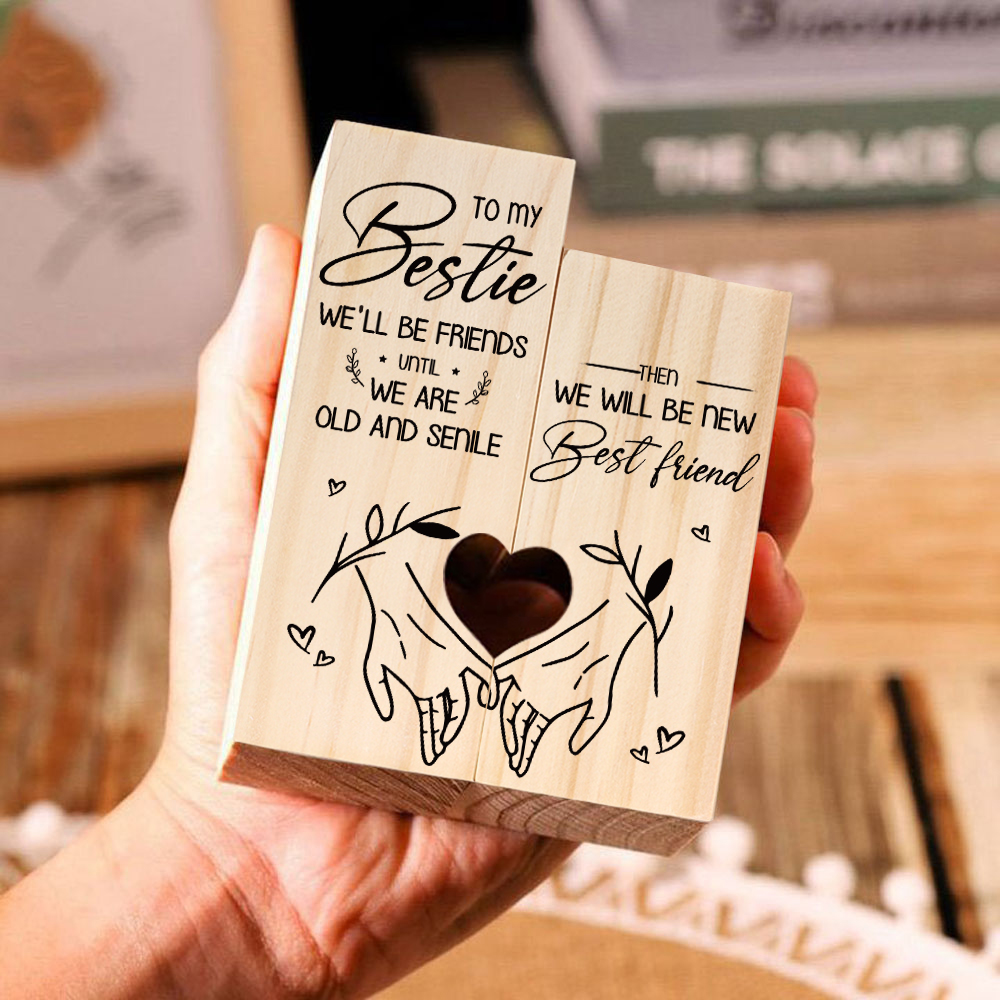 TO MY
Bestie
WE'LL BE FRIENDS
UNTIL
WE ARE
OLD AND SENILE
THEN
WE WILL BE NEW
Best friend
THE SOLACE